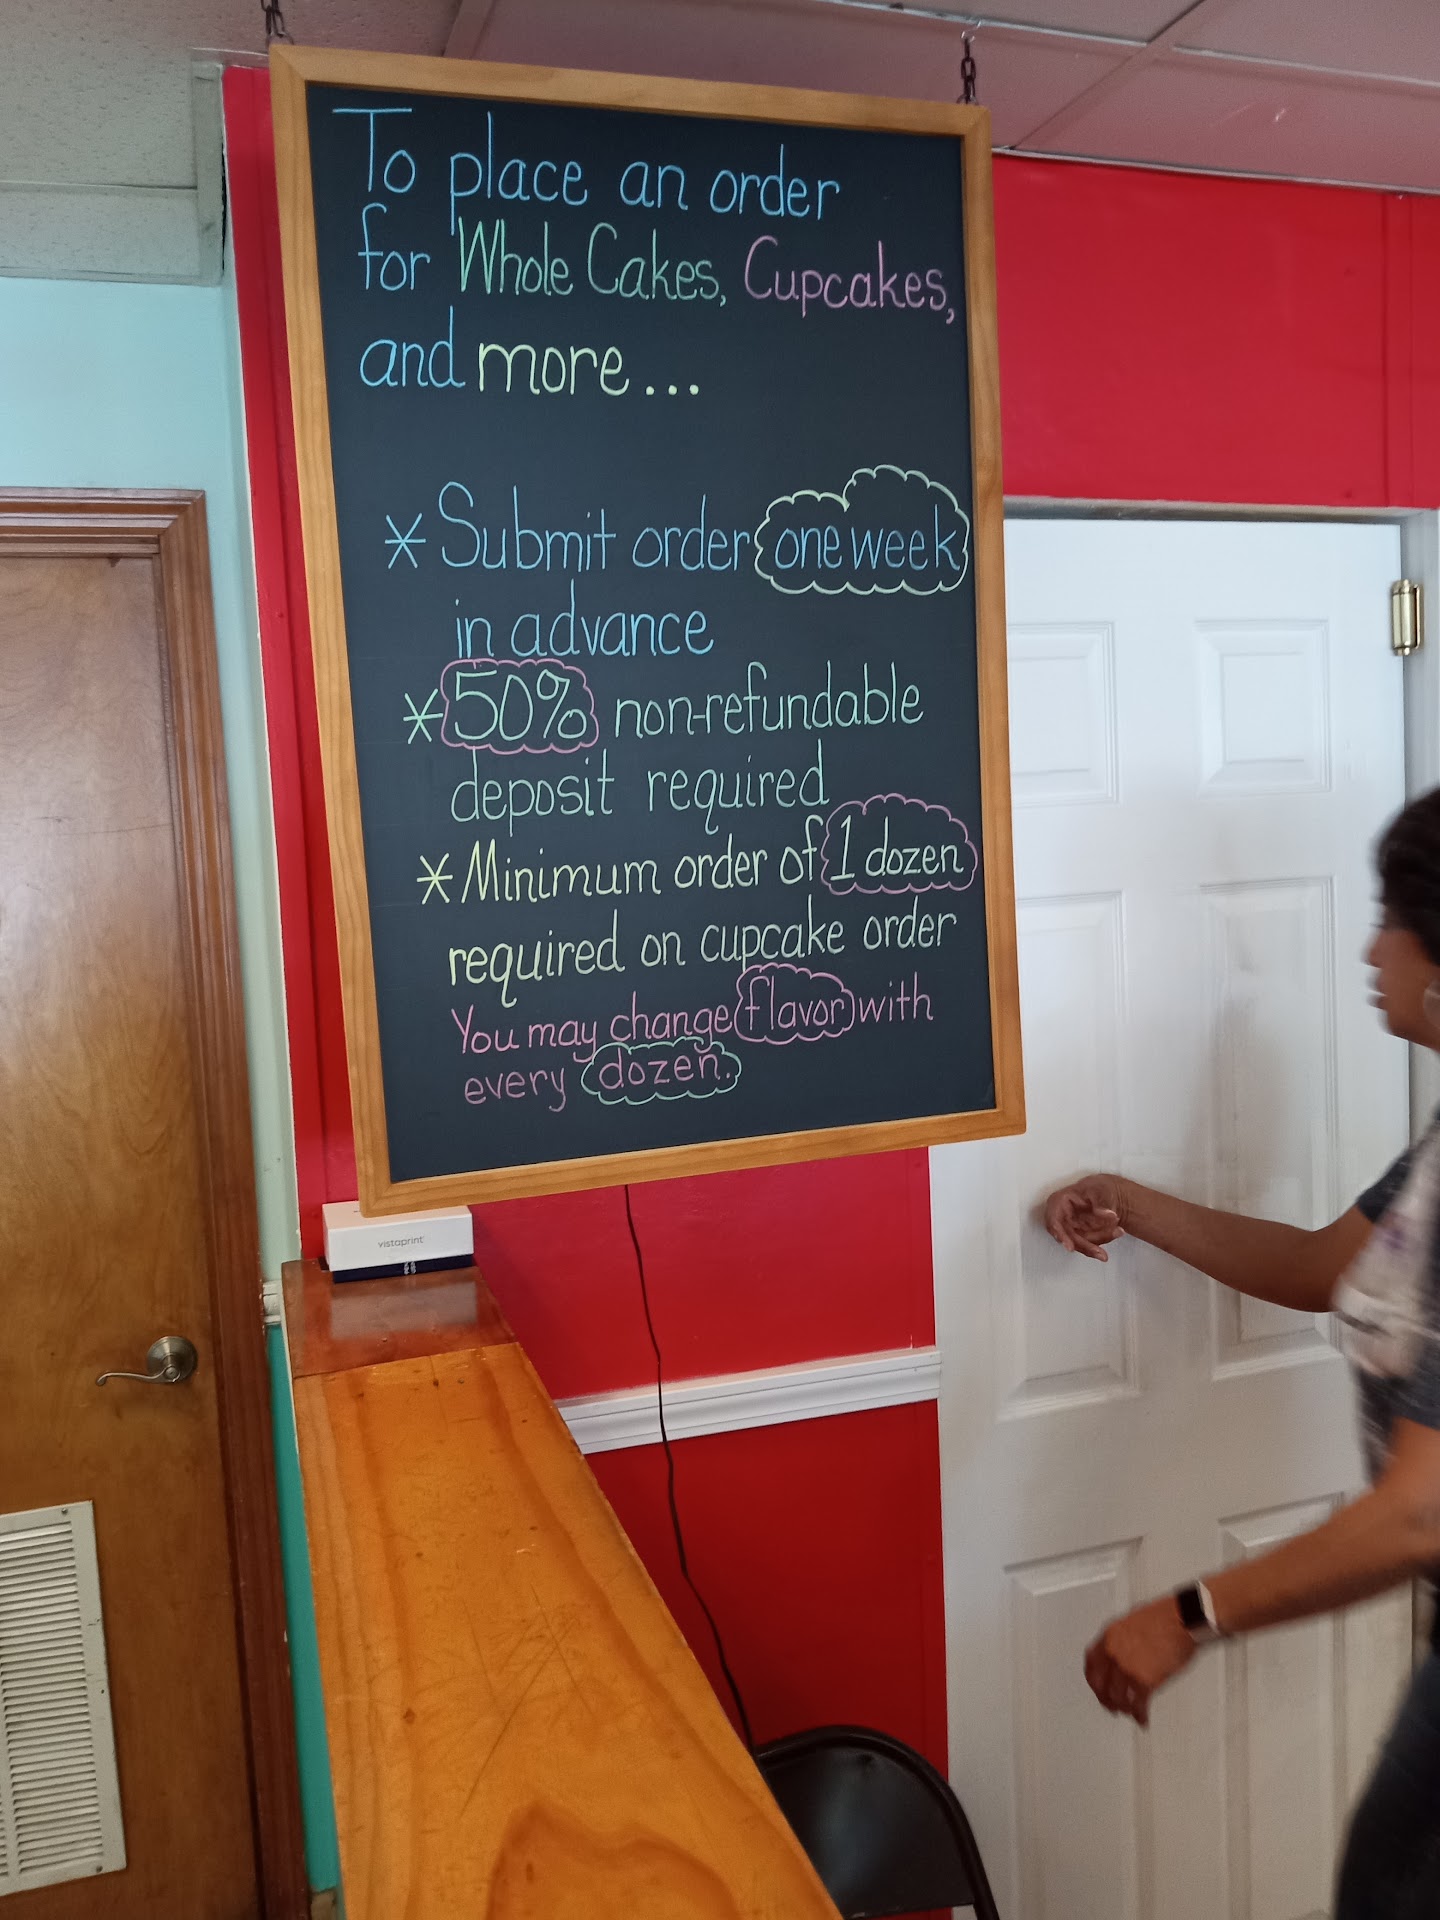 To place an order
for Whole Cakes, Cupcakes,
and more...
* Submit order one week
in advance
* 50% non-refundable
deposit required
* Minimum order of 1 dozen
required on cupcake order
You may change flavor with
every dozen.
vistaprint